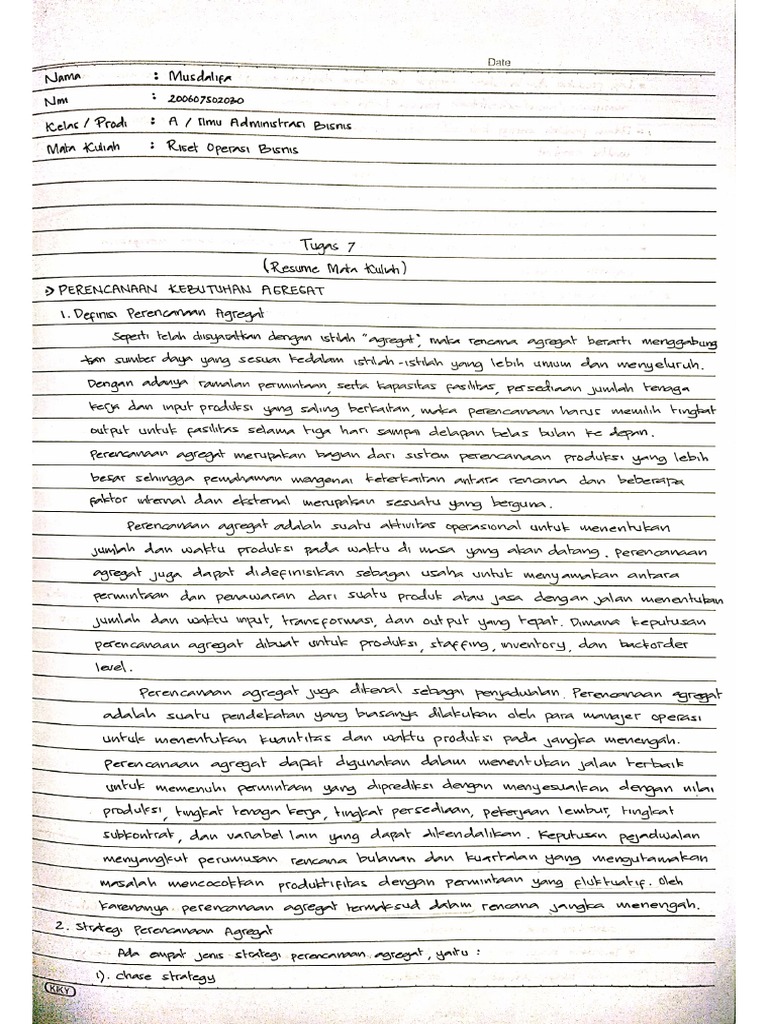 Date
Nama : Musdalifa
Nim : 200607502030
Kelas / Prodi : A / Ilmu Administrasi Bisnis
Mata Kuliah : Riset Operasi Bisnis
Tugas 7
(Resume Mata Kuliah)
> PERENCANAAN KEBUTUHAN AGREGAT
1. Definisi Perencanaan Agregat
Seperti telah diisyaratkan dengan istilah "agregat", maka rencana agregat berarti menggabung
kan sumber daya yang sesuai kedalam istilah-istilah yang lebih umum dan menyeluruh.
Dengan adanya ramalan permintaan, serta kapasitas fasilitas, persediaan jumlah tenaga
kerja dan input produksi yang saling berkaitan, maka perencanaan harus memilih tingkat
output untuk fasilitas selama tiga hari sampai delapan belas bulan ke depan.
Perencanaan agregat merupakan bagian dari sistem perencanaan produksi yang lebih
besar sehingga pemahaman mengenai keterkaitan antara rencana dan beberapa
faktor internal dan eksternal merupakan sesuatu yang berguna.
Perencanaan agregat adalah suatu aktivitas operasional untuk menentukan
jumlah dan waktu produksi pada waktu di masa yang akan datang. Perencanaan
agregat juga dapat didefinisikan sebagai usaha untuk menyamakan antara
permintaan dan penawaran dari suatu produk atau jasa dengan jalan menentukan
jumlah dan waktu input, transformasi, dan output yang tepat. Dimana keputusan
perencanaan agregat dibuat untuk produksi, staffing, inventory, dan backorder
level.
Perencanaan agregat juga dikenal sebagai penjadwalan. Perencanaan agregat
adalah suatu pendekatan yang biasanya dilakukan oleh para manajer operasi
untuk menentukan kuantitas dan waktu produksi pada jangka menengah.
Perencanaan agregat dapat digunakan dalam menentukan jalan terbaik
untuk memenuhi permintaan yang diprediksi dengan menyesuaikan dengan nilai
produksi, tingkat tenaga kerja, tingkat persediaan, pekerjaan lembur, tingkat
subkontrat, dan variabel lain yang dapat dikendalikan. Keputusan pejadwalan
menyangkut perumusan rencana bulanan dan kuartalan yang mengutamakan
masalah mencocokkan produktifitas dengan permintaan yang fluktuatif. Oleh
karenanya perencanaan agregat termaksud dalam rencana jangka menengah.
2. Strategi Perencanaan Agregat
Ada empat jenis strategi perencanaan agregat, yaitu :
1). chase strategy
KKY